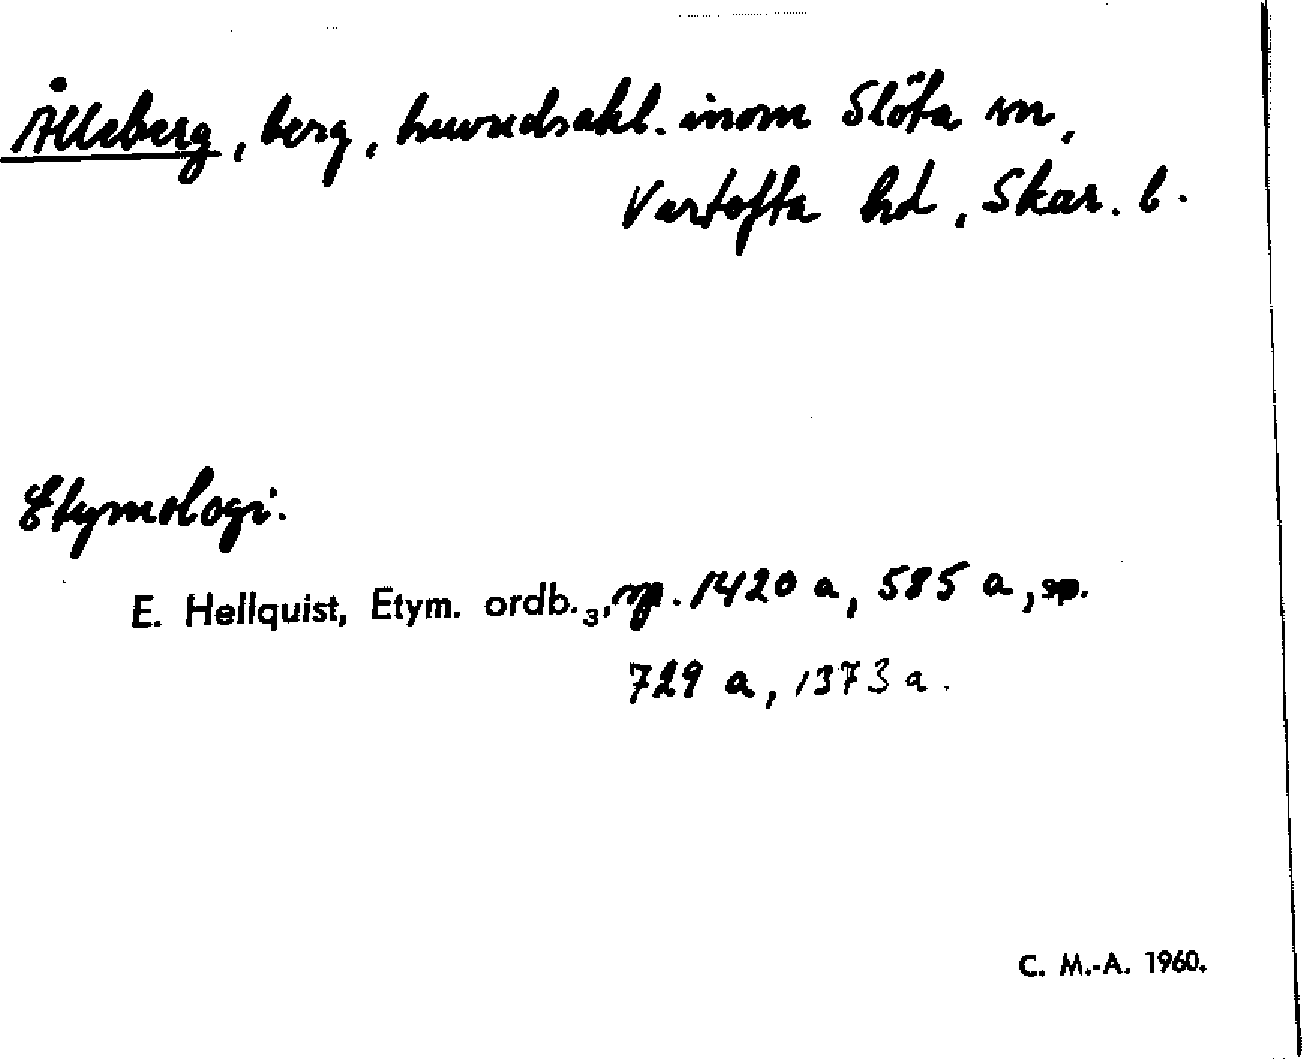 Ålleberg, berg, huvudsakl. inom Slöta sn,
Vartofta hd, Skar. l.
Etymologi.
E. Hellquist, Etym. ordb.₃, sp. 1420 a, 585 a, sp.
729 a, 1373 a.
C. M.-A. 1960.